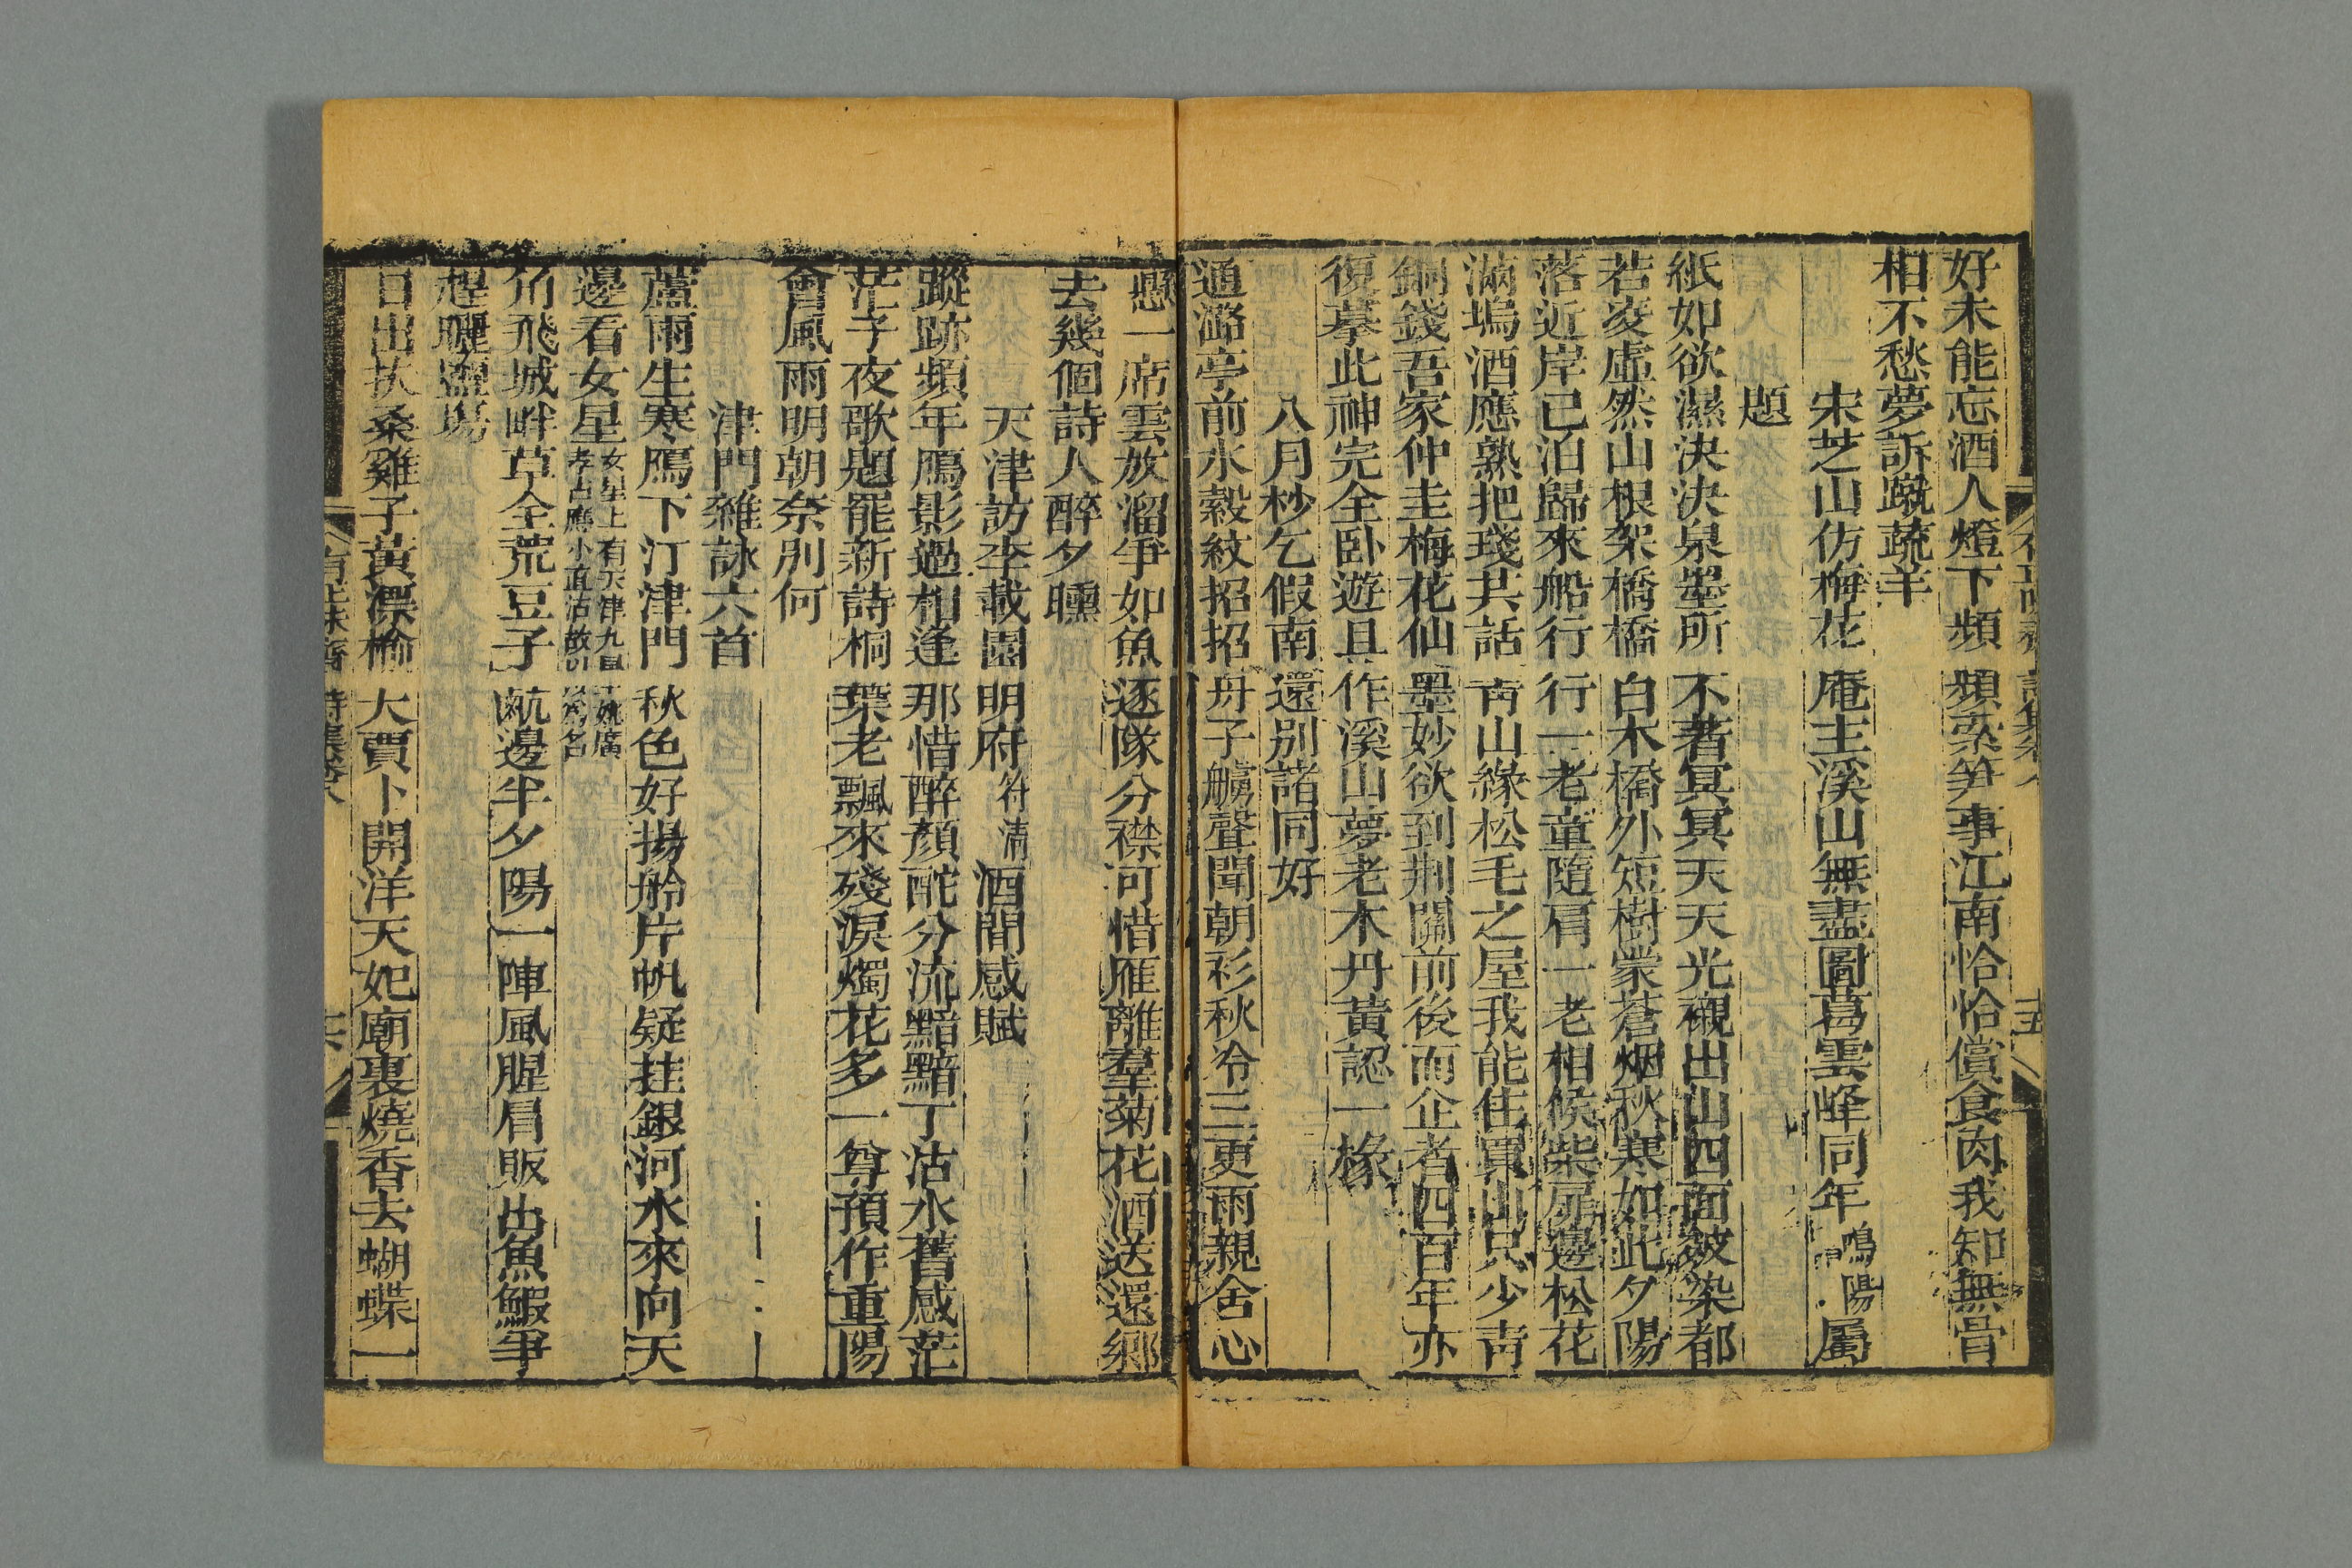 好未能忘酒人燈下頻頻索筍事江南恰恰償食肉我知無骨
相不愁夢訴蹴蔬羊
宋芝山仿梅花庵主溪山無盡圖葛雲峰同年鳴陽屬
題
紙如欲濕決決泉墨所不著冥冥天天光襯出山四面皴染都
若凌虛然山根架橋橋白木橋外短樹蒙蒼烟秋寒如此夕陽
落近岸已泊歸來船行行一老童隨肩一老相候柴扉邊松花
滿塢酒應熟把琖共話靑山緣松毛之屋我能住買山只少靑
銅錢吾家仲圭梅花仙墨妙欲到荆關前後而企者四百年亦
復摹此神完全卧遊且作溪山夢老木丹黃認一椽
八月杪乞假南還別諸同好
通潞亭前水縠紋招招舟子艣聲聞朝衫秋冷三更雨親舍心
懸一席雲放溜爭如魚逐隊分襟可惜雁離羣菊花酒送還鄉
去幾個詩人醉夕曛
天津訪李載園明府符淸酒間感賦
蹤跡頻年鴈影過相逢那惜醉顏酡分流黯黯丁沽水舊感茫
茫子夜歌題罷新詩桐葉老飄來殘淚燭花多一尊預作重陽
會風雨明朝奈別何
津門雜詠六首
蘆雨生寒鴈下汀津門秋色好揚舲片帆疑挂銀河水來向天
邊看女星女星上有天津九星
角飛城畔草全荒豆子䴚邊半夕陽一陣風腥眉販出魚鰕爭
趕曬鹽場
日出扶桑雞子黃漂楡大賈卜開洋天妃廟裏燒香去蝴蝶一
有正味齋詩集卷八